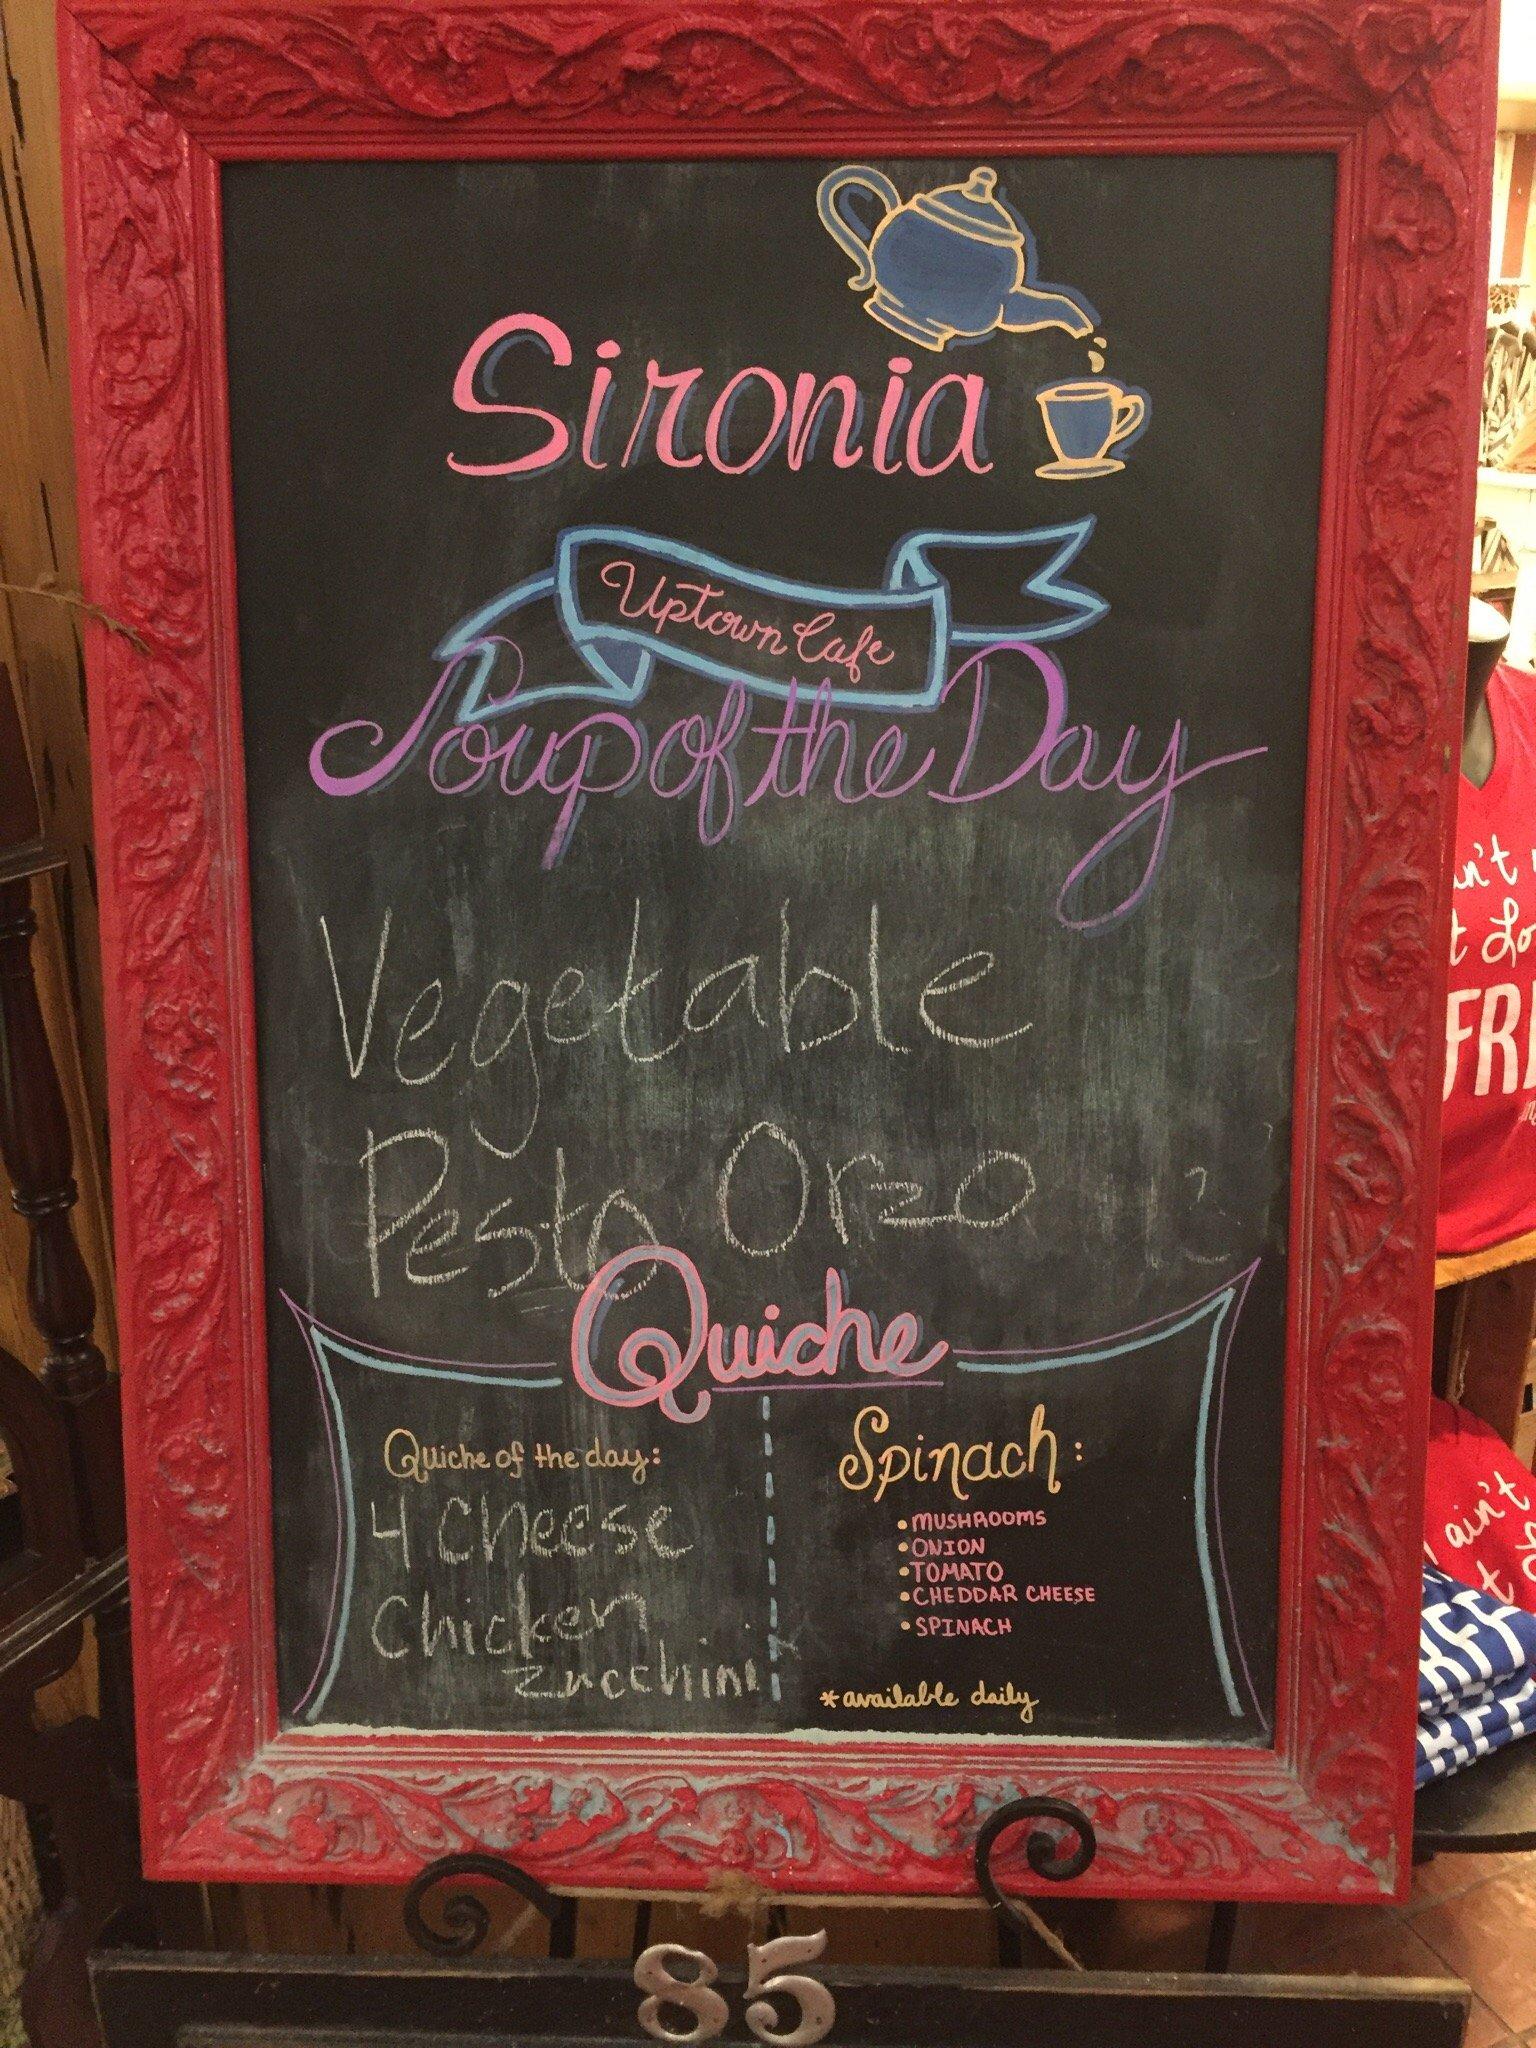 Sironia
Uptown Cafe
Soup of the Day
Vegetable
Pesto Orzo
Quiche
Quiche of the day:
4 cheese
Chicken
zucchini
Spinach:
• MUSHROOMS
• ONION
• TOMATO
• CHEDDAR CHEESE
• SPINACH
*available daily
85
ain't
FR
ain't